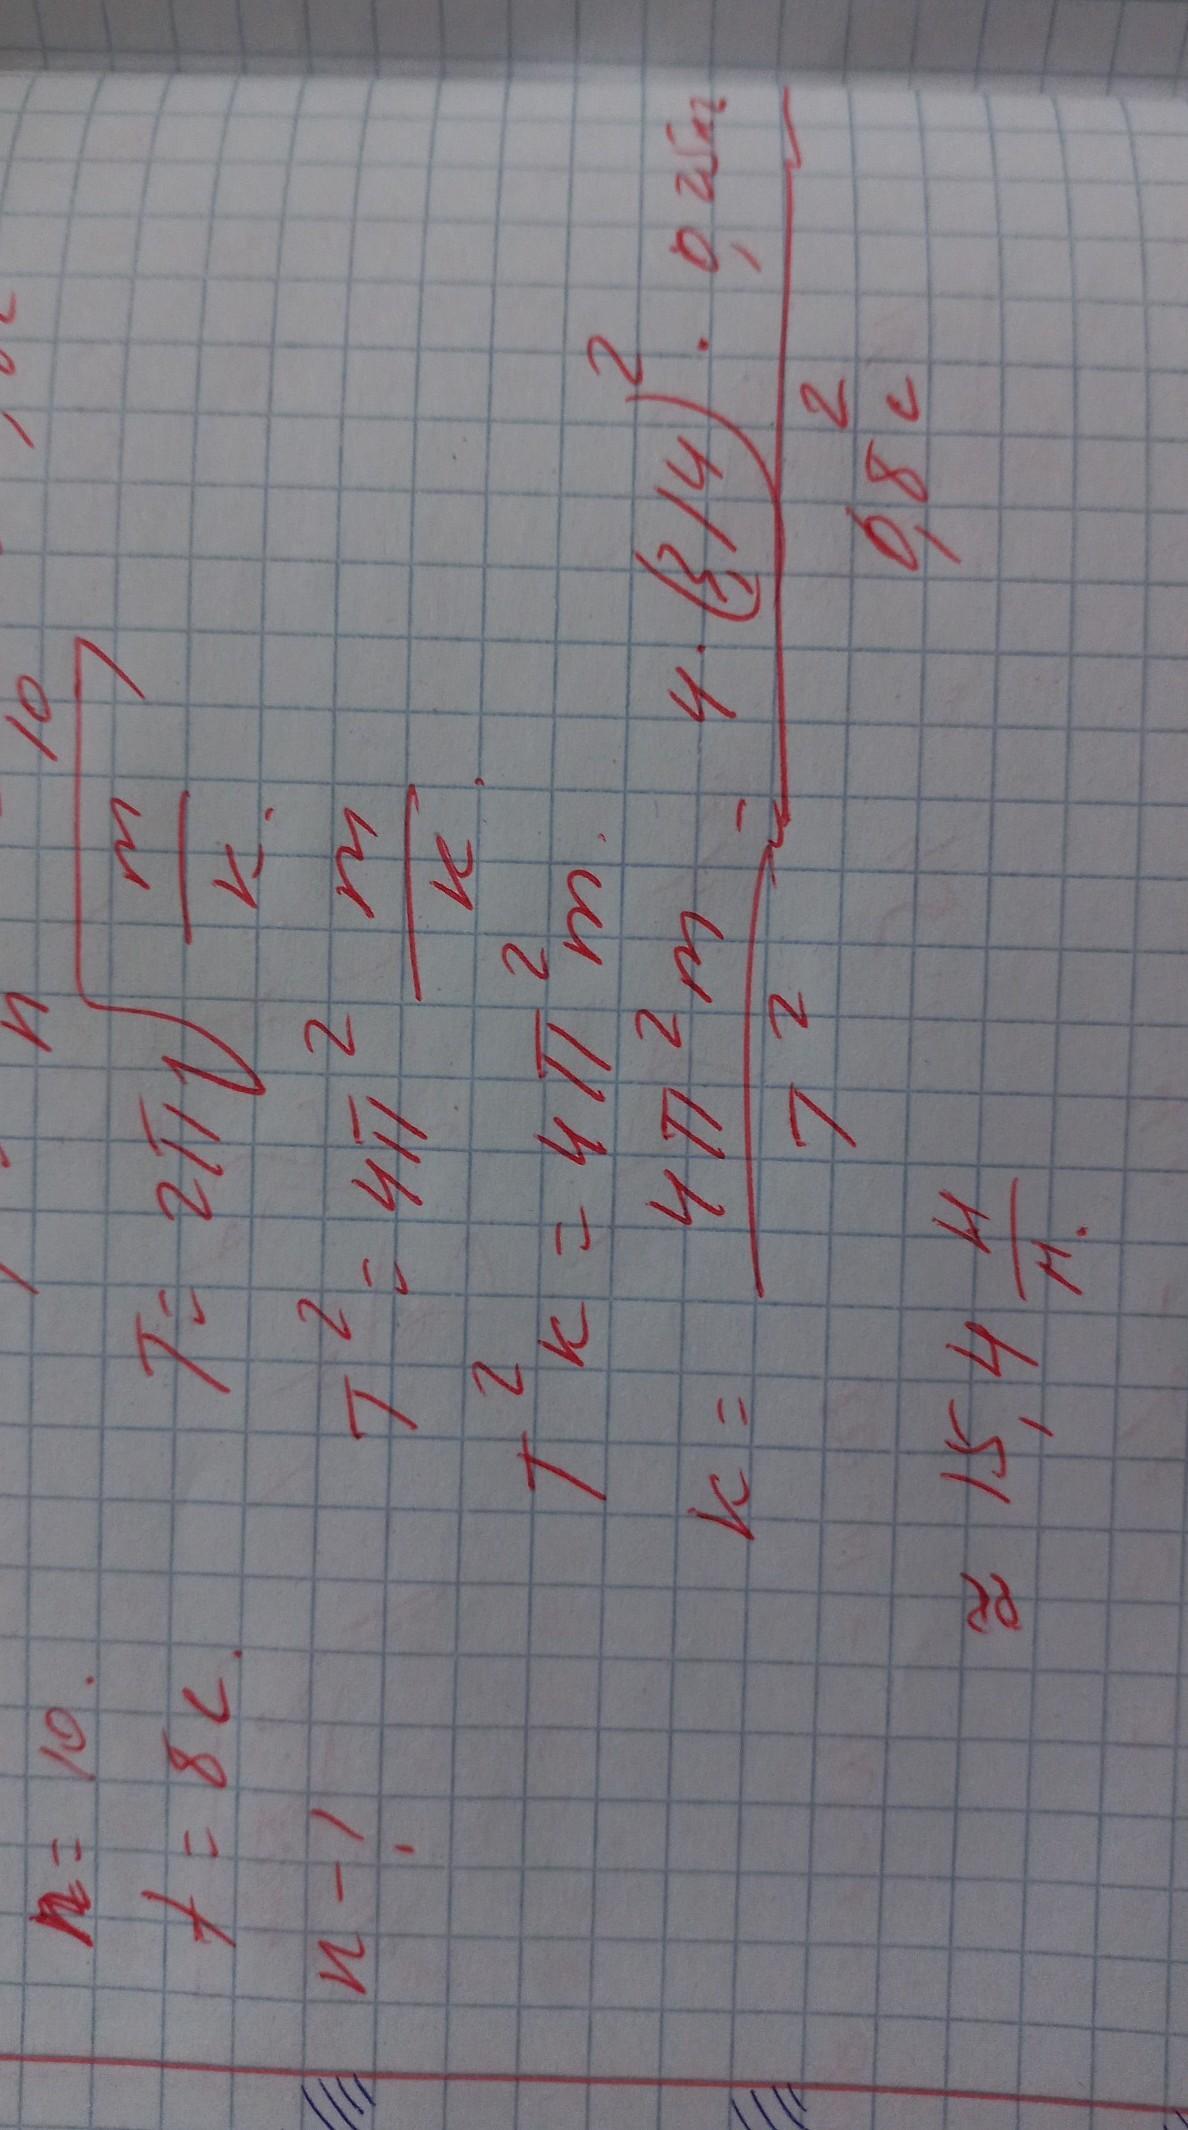 n = 10.
t = 8 с.
к - ?
n 10
T = 2π√(m/к).
T² = 4π² m/к.
T² к = 4π² m.
к = 4π² m / T² = 4 · (3,14)² · 0,25кг / 0,8² с
≈ 15,4 Н/м.